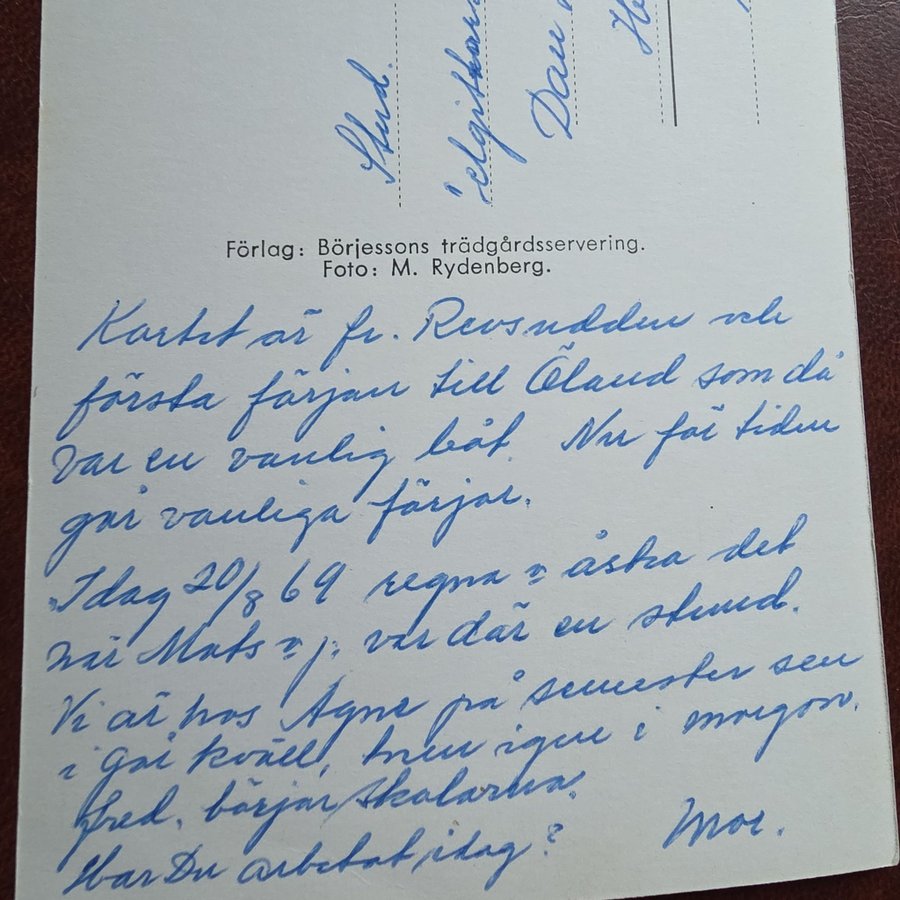 Stud.
Dan
Förlag: Börjessons trädgårdsservering.
Foto: M. Rydenberg.
Kortet är fr. Revsudden och
första färjan till Öland som då
var en vanlig båt. Nu för tiden
går vanliga färjor.
Idag 20/8 69 regna o åska det
när Mats o j. var där en stund.
Vi är hos Agne på semester sen
i går kväll, hem igen i morgon.
fred. börjar skolorna.
Har Du arbetat idag? Moe.